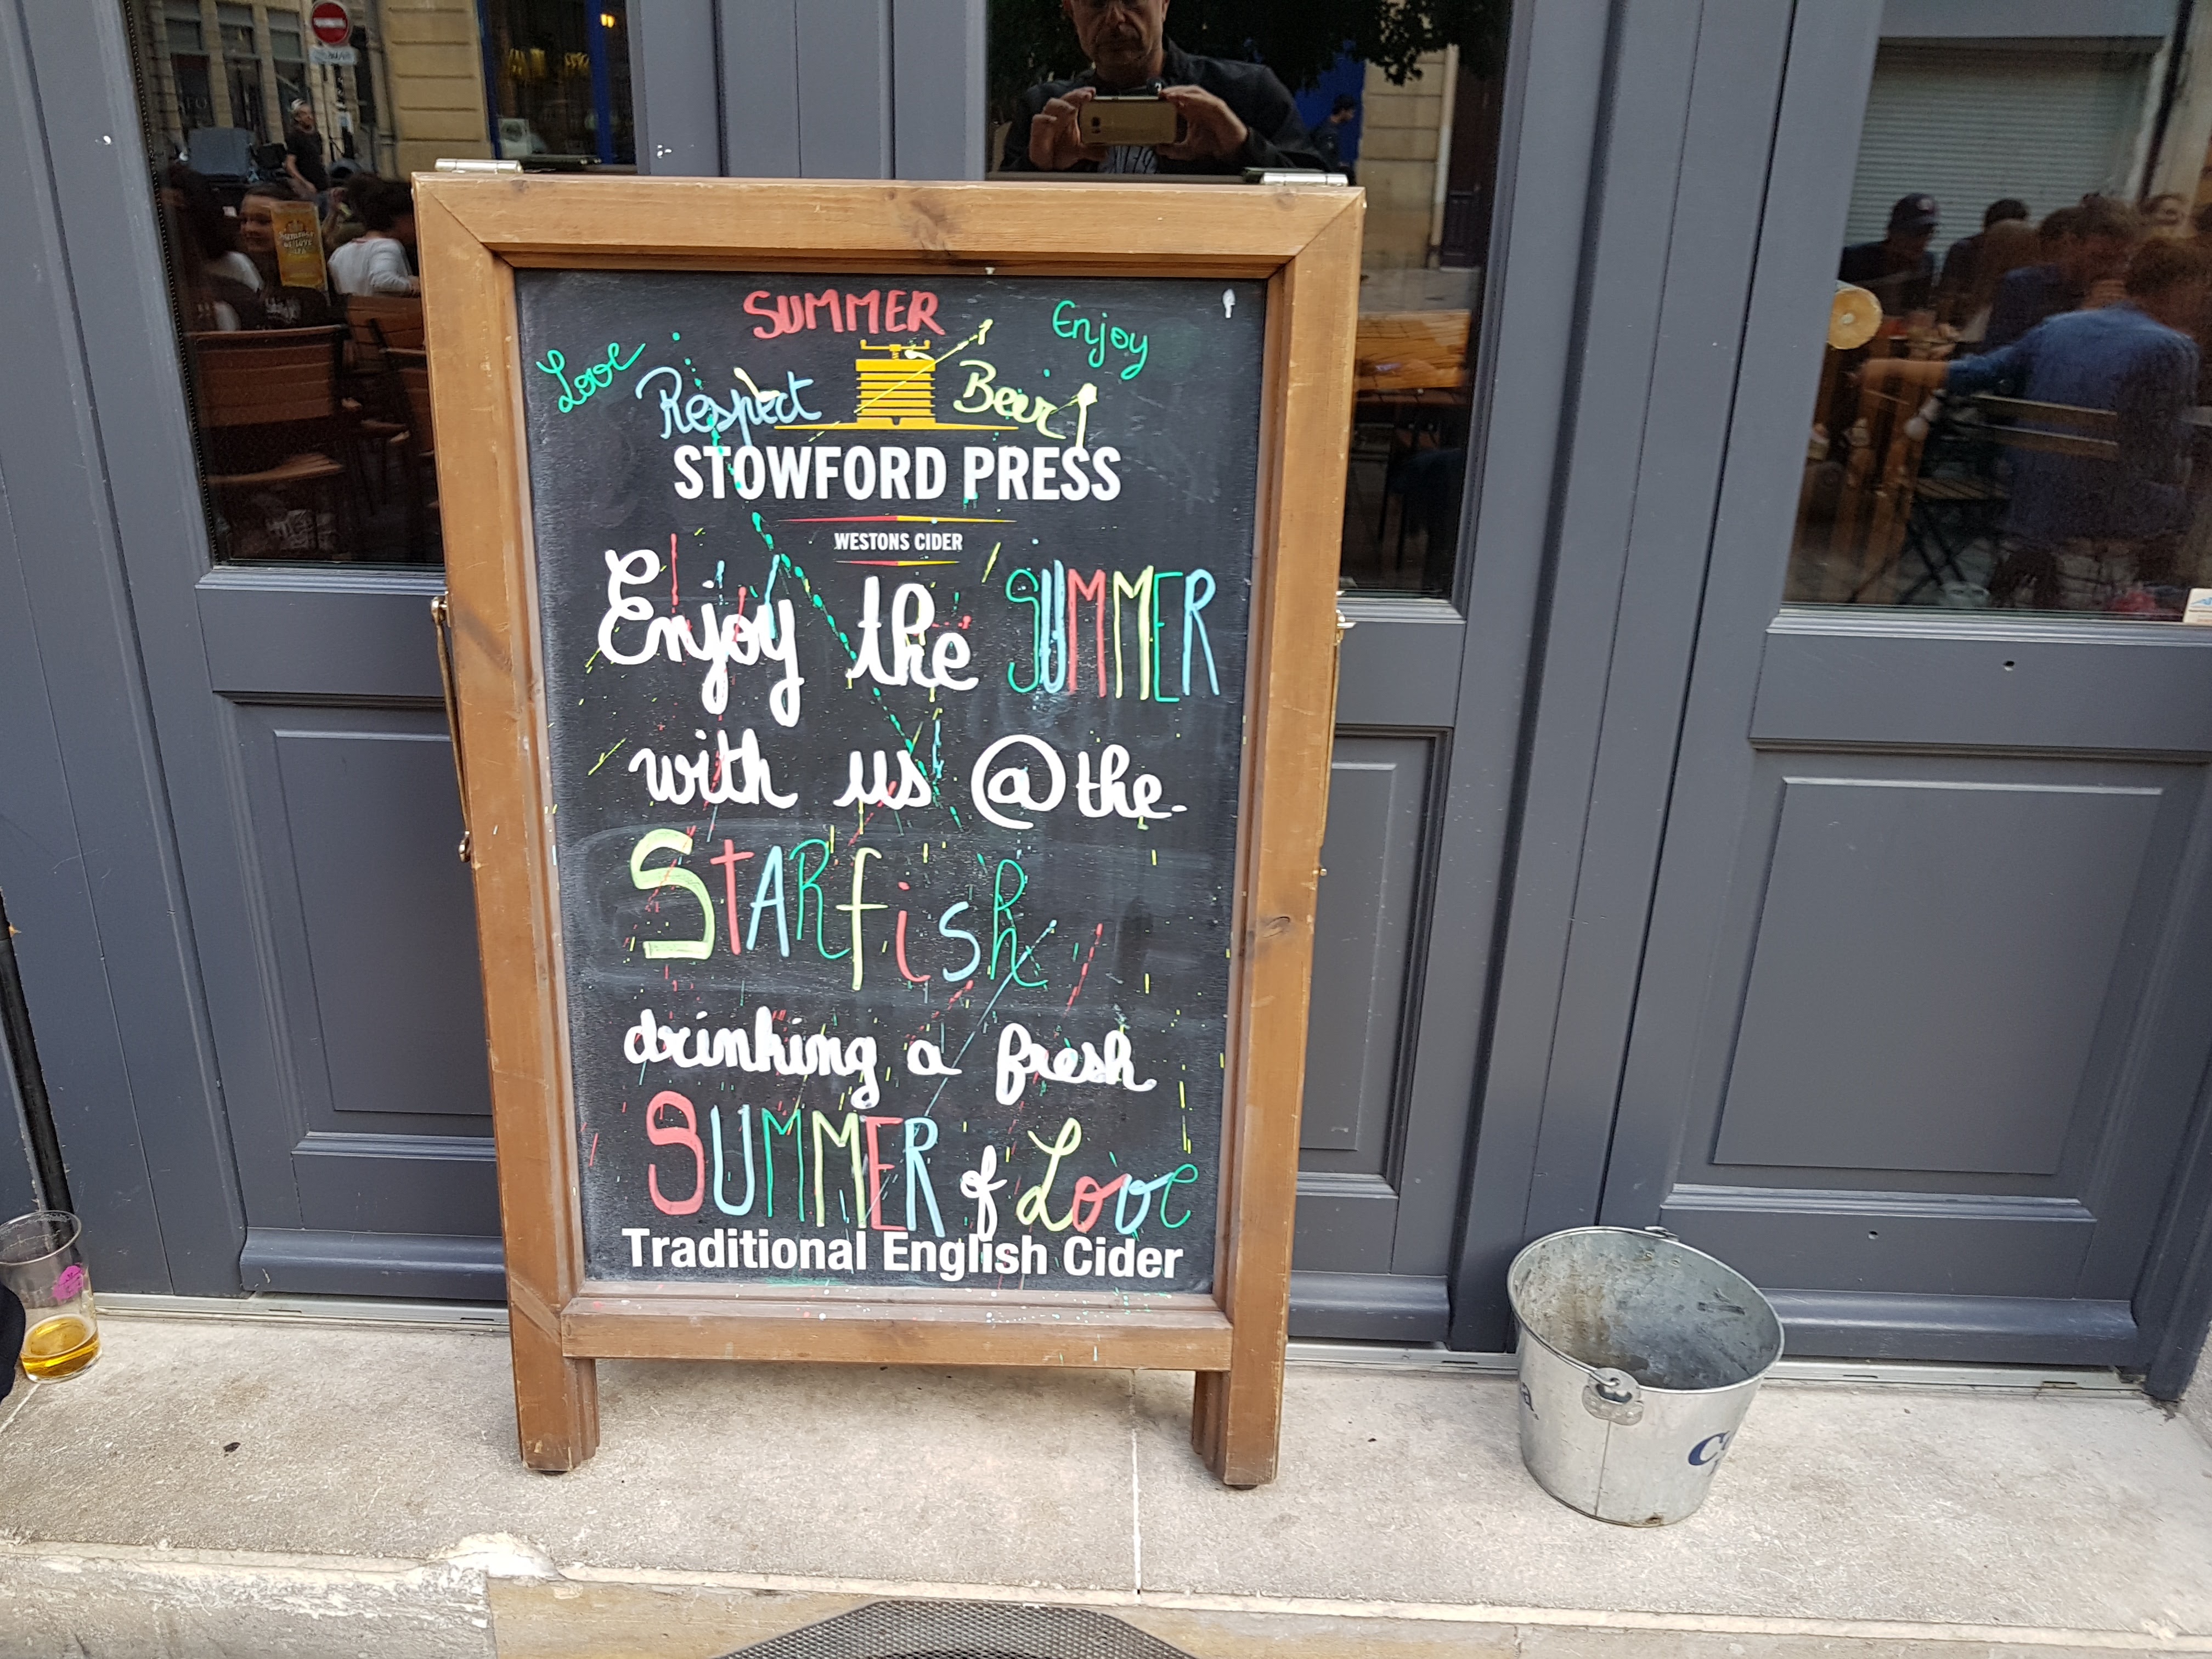 SUMMER
Enjoy
Love
Respect
Beer
STOWFORD PRESS
WESTONS CIDER
Enjoy the SUMMER
with us @ the
STARfish
drinking a fresh
SUMMER of Love
Traditional English Cider